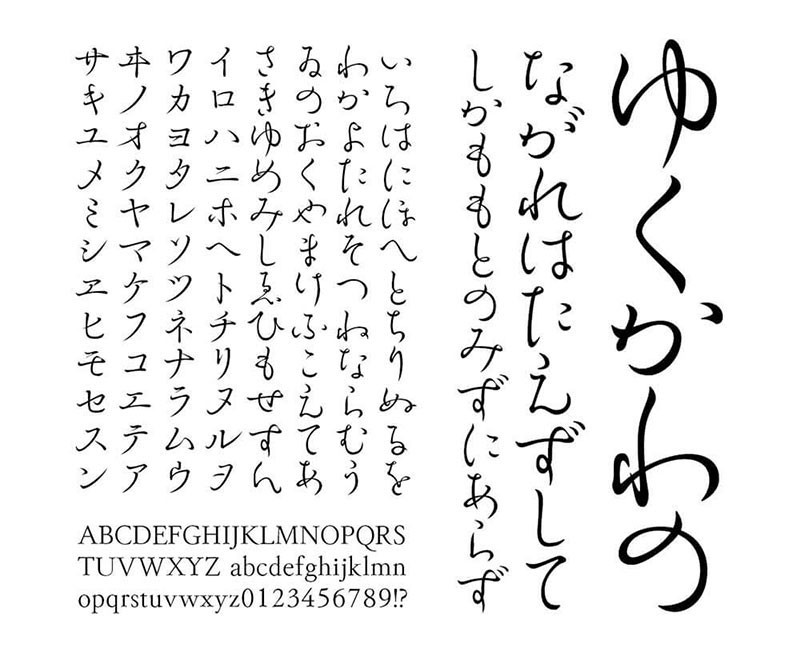 ゆくかわの
ながれはたえずして
しかももとのみずにあらず
いろはにほへとちりぬるを
わかよたれそつねならむう
ゐのおくやまけふこえてあ
さきゆめみしゑひもせすん
イロハニホヘトチリヌルヲ
ワカヨタレソツネナラムウ
ヰノオクヤマケフコエテア
サキユメミシヱヒモセスン
ABCDEFGHIJKLMNOPQRS
TUVWXYZ abcdefghijklmn
opqrstuvwxyz0123456789!?